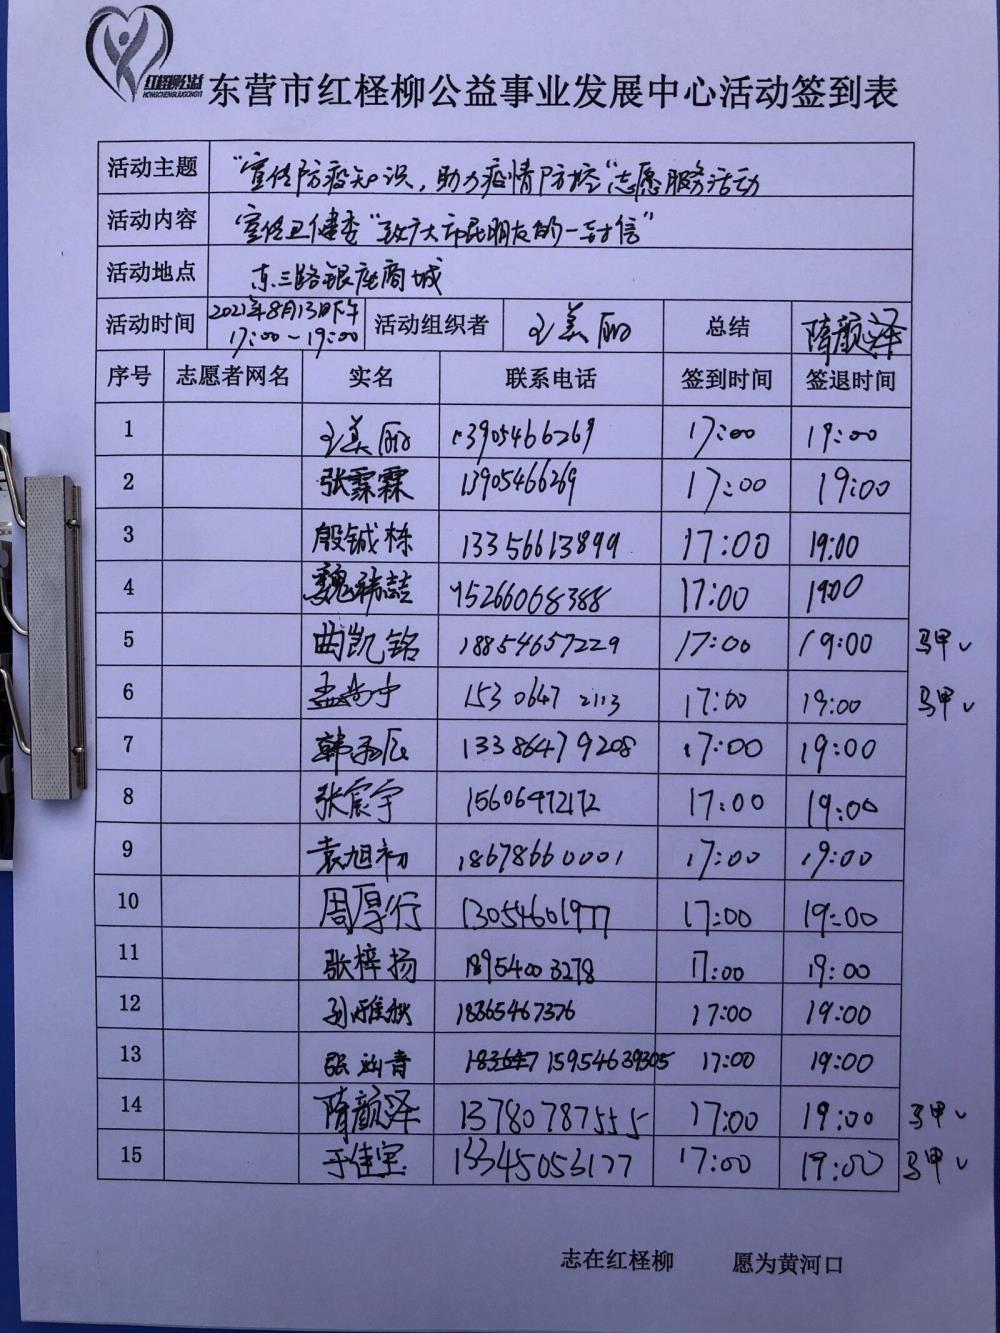 红柽柳公益
HONGCHENGLIUGONGYI
东营市红柽柳公益事业发展中心活动签到表
活动主题 “宣传防疫知识，助力疫情防控”志愿服务活动
活动内容 宣传卫健委“致广大市民朋友的一封信”
活动地点 东三路银座商城
活动时间 2021年8月13日下午 17:00~19:00 活动组织者 王美丽 总结 隋颜泽
序号 志愿者网名 实名 联系电话 签到时间 签退时间
1 王美丽 13905466269 17:00 19:00
2 张霖霖 13905466269 17:00 19:00
3 殷铖栋 13356613899 17:00 19:00
4 魏祎喆 15266068388 17:00 19:00
5 曲凯铭 18854657229 17:00 19:00 马甲✓
6 孟 15306472113 17:00 19:00 马甲✓
7 韩 13386479208 17:00 19:00
8 张宸宇 15606472172 17:00 19:00
9 袁旭初 18678660001 17:00 19:00
10 周厚行 13054601977 17:00 19:00
11 张梓扬 18954003278 17:00 19:00
12 孙雅秋 18865467376 17:00 19:00
13 张 15954639305 17:00 19:00
14 隋颜泽 13780787555 17:00 19:00 马甲✓
15 于佳宝 13345053177 17:00 19:00 马甲✓
志在红柽柳 愿为黄河口